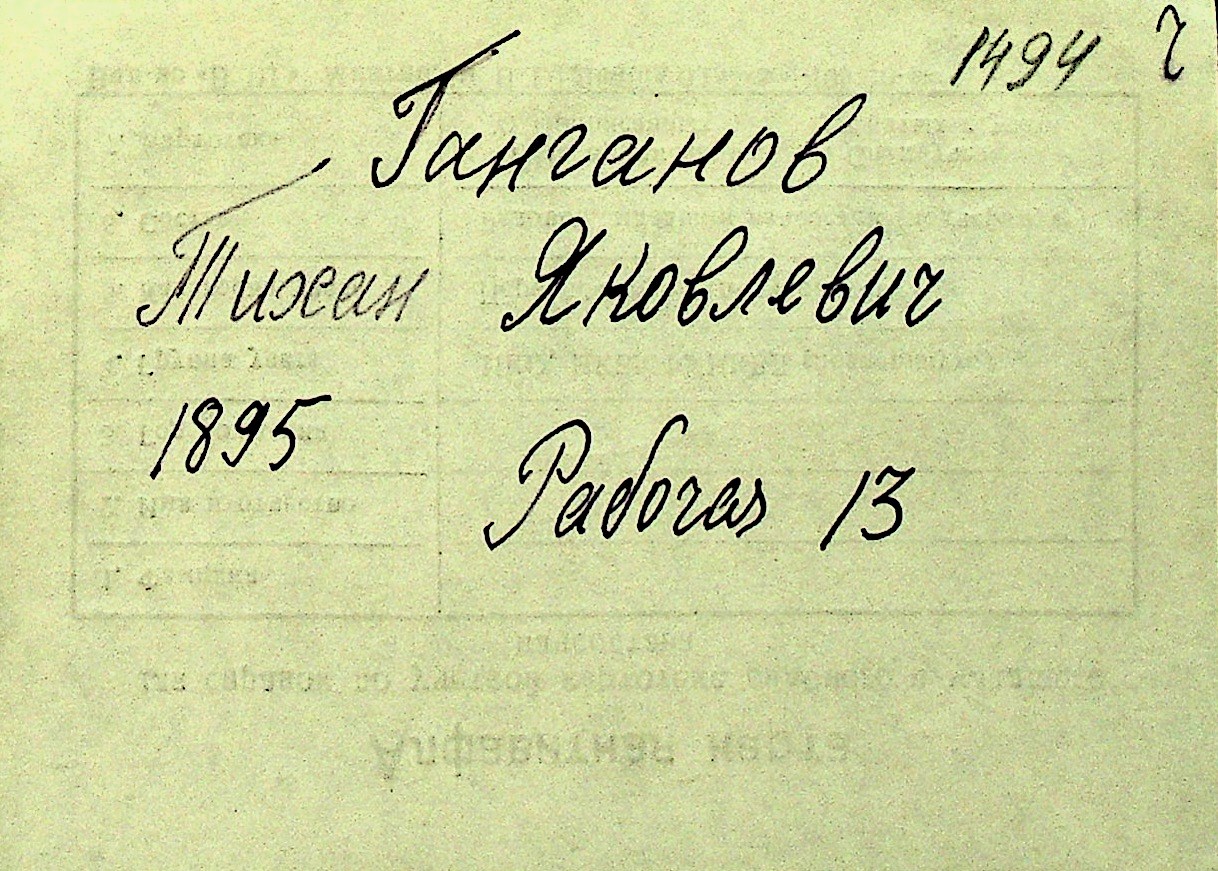 1494 г
Ганганов
Тихан Яковлевич
1895
Рабочая 13